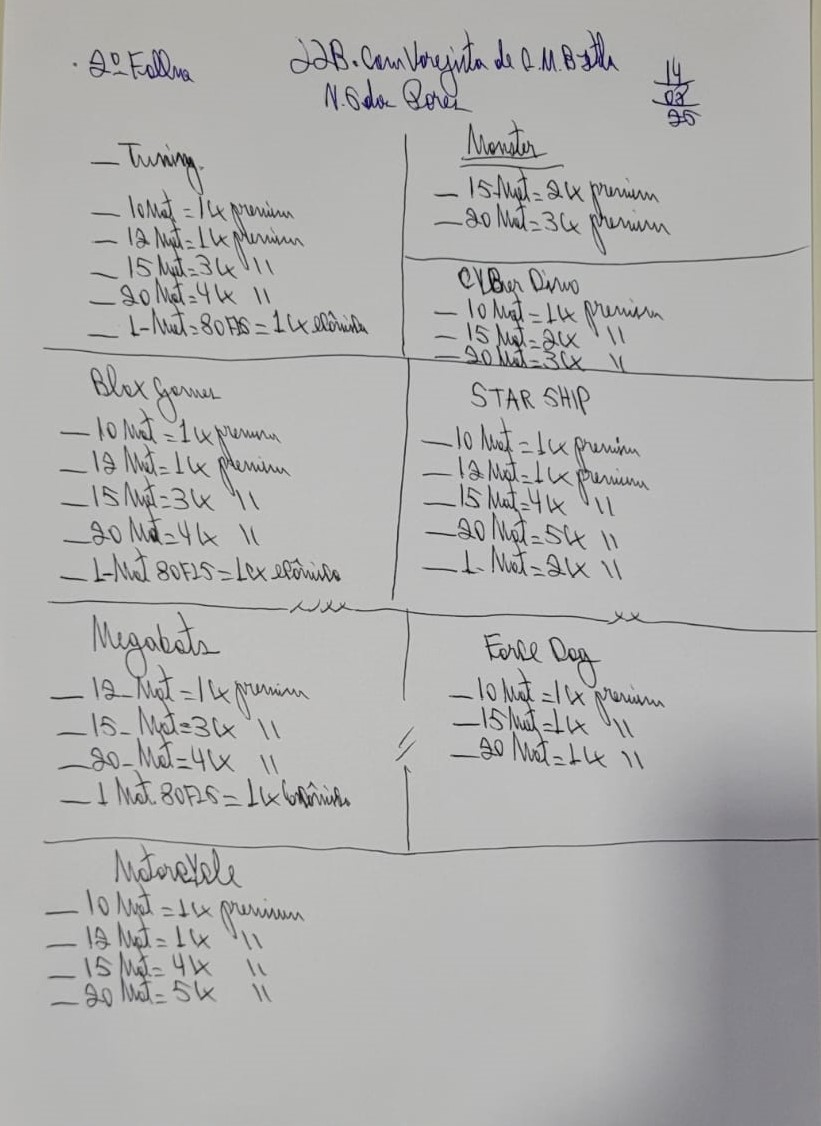 2º Folha
22B. Com Varejista de
14
02
25
— Tuning.
— 10 Mat = 1 cx premium
— 12 Mat = 1 cx premium
— 15 Mat = 3 cx "
— 20 Mat = 4 cx "
— 1-Mat = 80 Fls = 1 cx
Monster
— 15 Mat = 2 cx premium
— 20 Mat = 3 cx premium
CYBer Dino
— 10 Mat = 1 cx premium
— 15 Mat = 2 cx "
— 20 Mat = 3 cx "
Blox Games
— 10 Mat = 1 cx premium
— 12 Mat = 1 cx premium
— 15 Mat = 3 cx "
— 20 Mat = 4 cx "
— 1-Mat 80 FLS = 1 cx
STAR SHIP
— 10 Mat = 1 cx premium
— 12 Mat = 1 cx premium
— 15 Mat = 4 cx "
— 20 Mat = 5 cx "
— 1- Mat = 2 cx "
Megabots
— 12 - Mat = 1 cx premium
— 15 - Mat = 3 cx "
— 20 - Mat = 4 cx "
— 1 Mat. 80 FLS = 1 cx
Force Dog
— 10 Mat = 1 cx premium
— 15 Mat = 1 cx "
— 20 Mat = 1 cx "
Motorcycle
— 10 Mat = 1 cx premium
— 12 Mat = 1 cx "
— 15 Mat = 4 cx "
— 20 Mat = 5 cx "